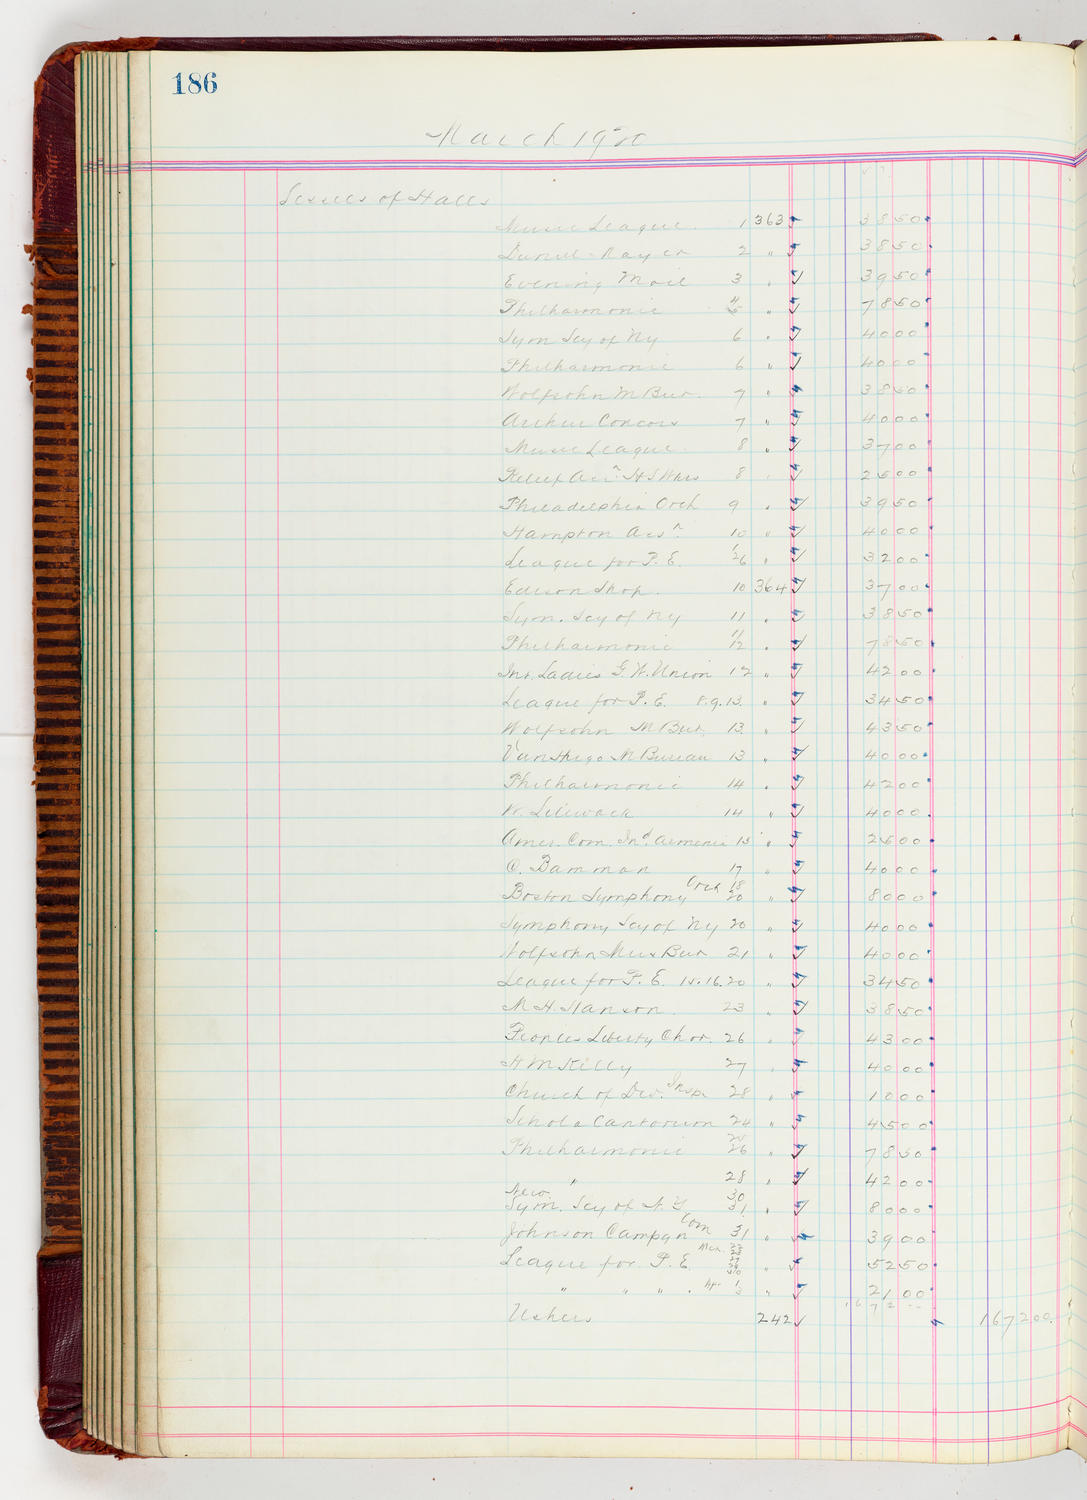 186
March 1920
Lessees of Halls
Music League. 1 363 3850
2 " 3850
Evening Mail 3 " 3950
Philharmonic 4 5 " 7850
Sym Scy of Ny 6 " 4000
Philharmonic 6 " 4000
Wolfsohn M Bur. 7 " 3850
Arthur Concors 7 " 4000
Music League 8 " 3700
Relief Assn 8 " 2500
Philadelphia Orch 9 " 3950
Hampton Assn. 10 " 4000
League for P. E. 1 26 " 3200
Edison Shop. 10 364 3700
Sym. Scy of Ny 11 " 3850
Philharmonic 11 12 " 7850
Int. Ladies G. W. Union 12 " 4200
League for P. E. 8.9.13. " 3450
Wolfsohn M Bur. 13 " 4350
Van Hugo M Bureau 13 " 4000
Philharmonic 14 " 4200
14 " 4000
Amer. Com. Ind. Armenia 13 " 2500
C. Bamman 17 " 4000
Boston Symphony Orch 18 20 " 8000
Symphony Scy of Ny 20 " 4000
Wolfsohn Mus Bur 21 " 4000
League for P. E. 15.16.20 " 3450
M H Hanson 23 " 3850
Peoples Liberty Chor. 26 " 4300
H M Kelly 27 " 4000
Church of Div. Insp. 28 " 1000
Schola Cantorum 24 " 4500
Philharmonic 25 26 " 7850
" 28 " 4200
New Sym. Scy of N. Y 30 31 " 8000
Johnson Campgn Com 31 " 3900
League for P. E. Mar. " 5250
" " " " Apr 1 3 " 2100
Ushers 242 1672 167200